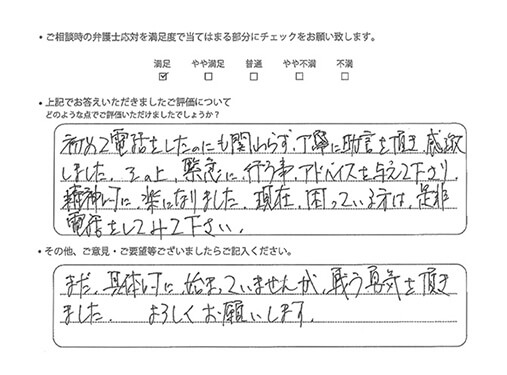 ・ご相談時の弁護士応対を満足度で当てはまる部分にチェックをお願い致します。
満足 やや満足 普通 やや不満 不満
☑ ☐ ☐ ☐ ☐
・上記でお答えいただきましたご評価について
どのような点でご評価いただけましたでしょうか？
初めて電話をしたのにも関わらず、丁寧に助言を頂き、感激
しました。その上、緊急に、行う事、アドバイスを与えて下さり、
精神的に、楽になりました。現在、困っている方は、是非
電話をしてみて下さい。
・その他、ご意見・ご要望等ございましたらご記入ください。
まだ、具体的に、始まっていませんが、戦う勇気を頂き
ました。 よろしくお願いします。